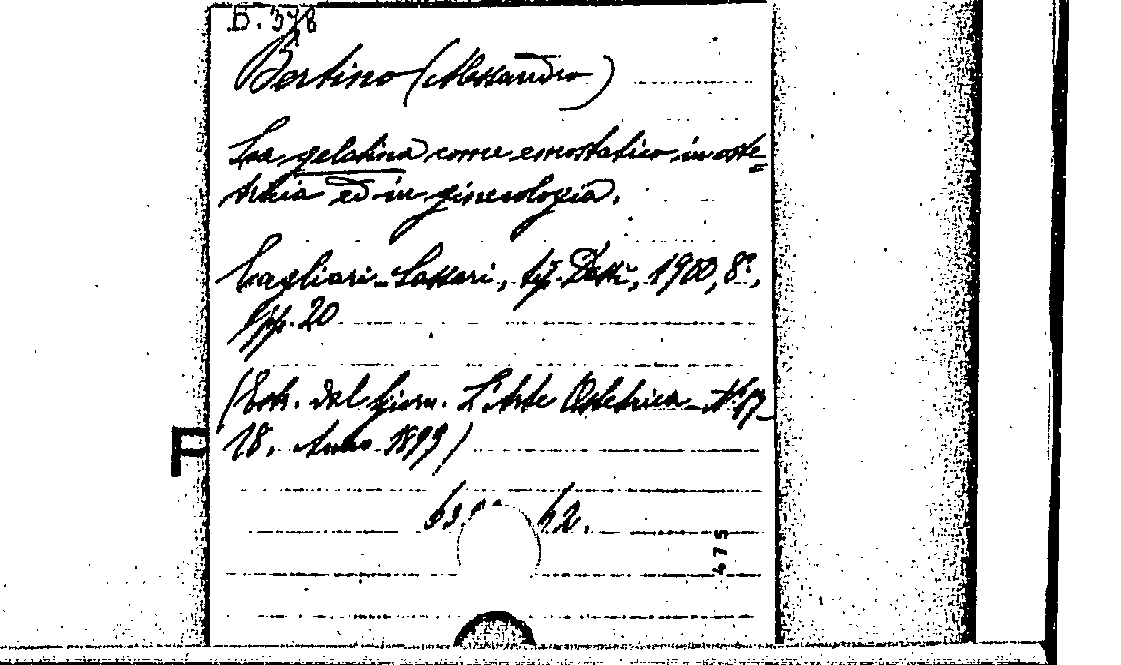 B. 378
Bertino (Alessandro)
La gelatina come emostatico in oste=
tricia ed in ginecologia.
Cagliari-Sassari, tip. Dessì, 1900, 8º,
pp. 20
(Estr. dal Giorn. L'Arte Ostetrica - N. 17-
18. Anno 1899)
62.
475
F